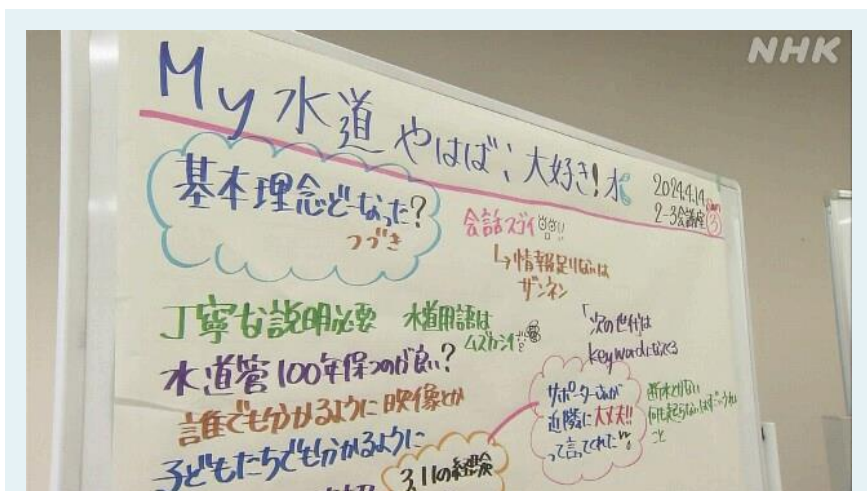 NHK
My 水道 やはば; 大好き! 水
2024.4.14
2-3会議室
基本理念どーなった?
つづき
会話スゴイ
↳情報足りないは
ザンネン
丁寧な説明必要
水道用語は
ムズカシイ
「次の世代は
keywordになってる
水道管100年保つのが良い?
誰でも分かるように映像とか
サポーターさんが
近隣に大丈夫!!
って言ってくれた
断水とかない
こと
子どもたちでも分かるように
3.11の経験